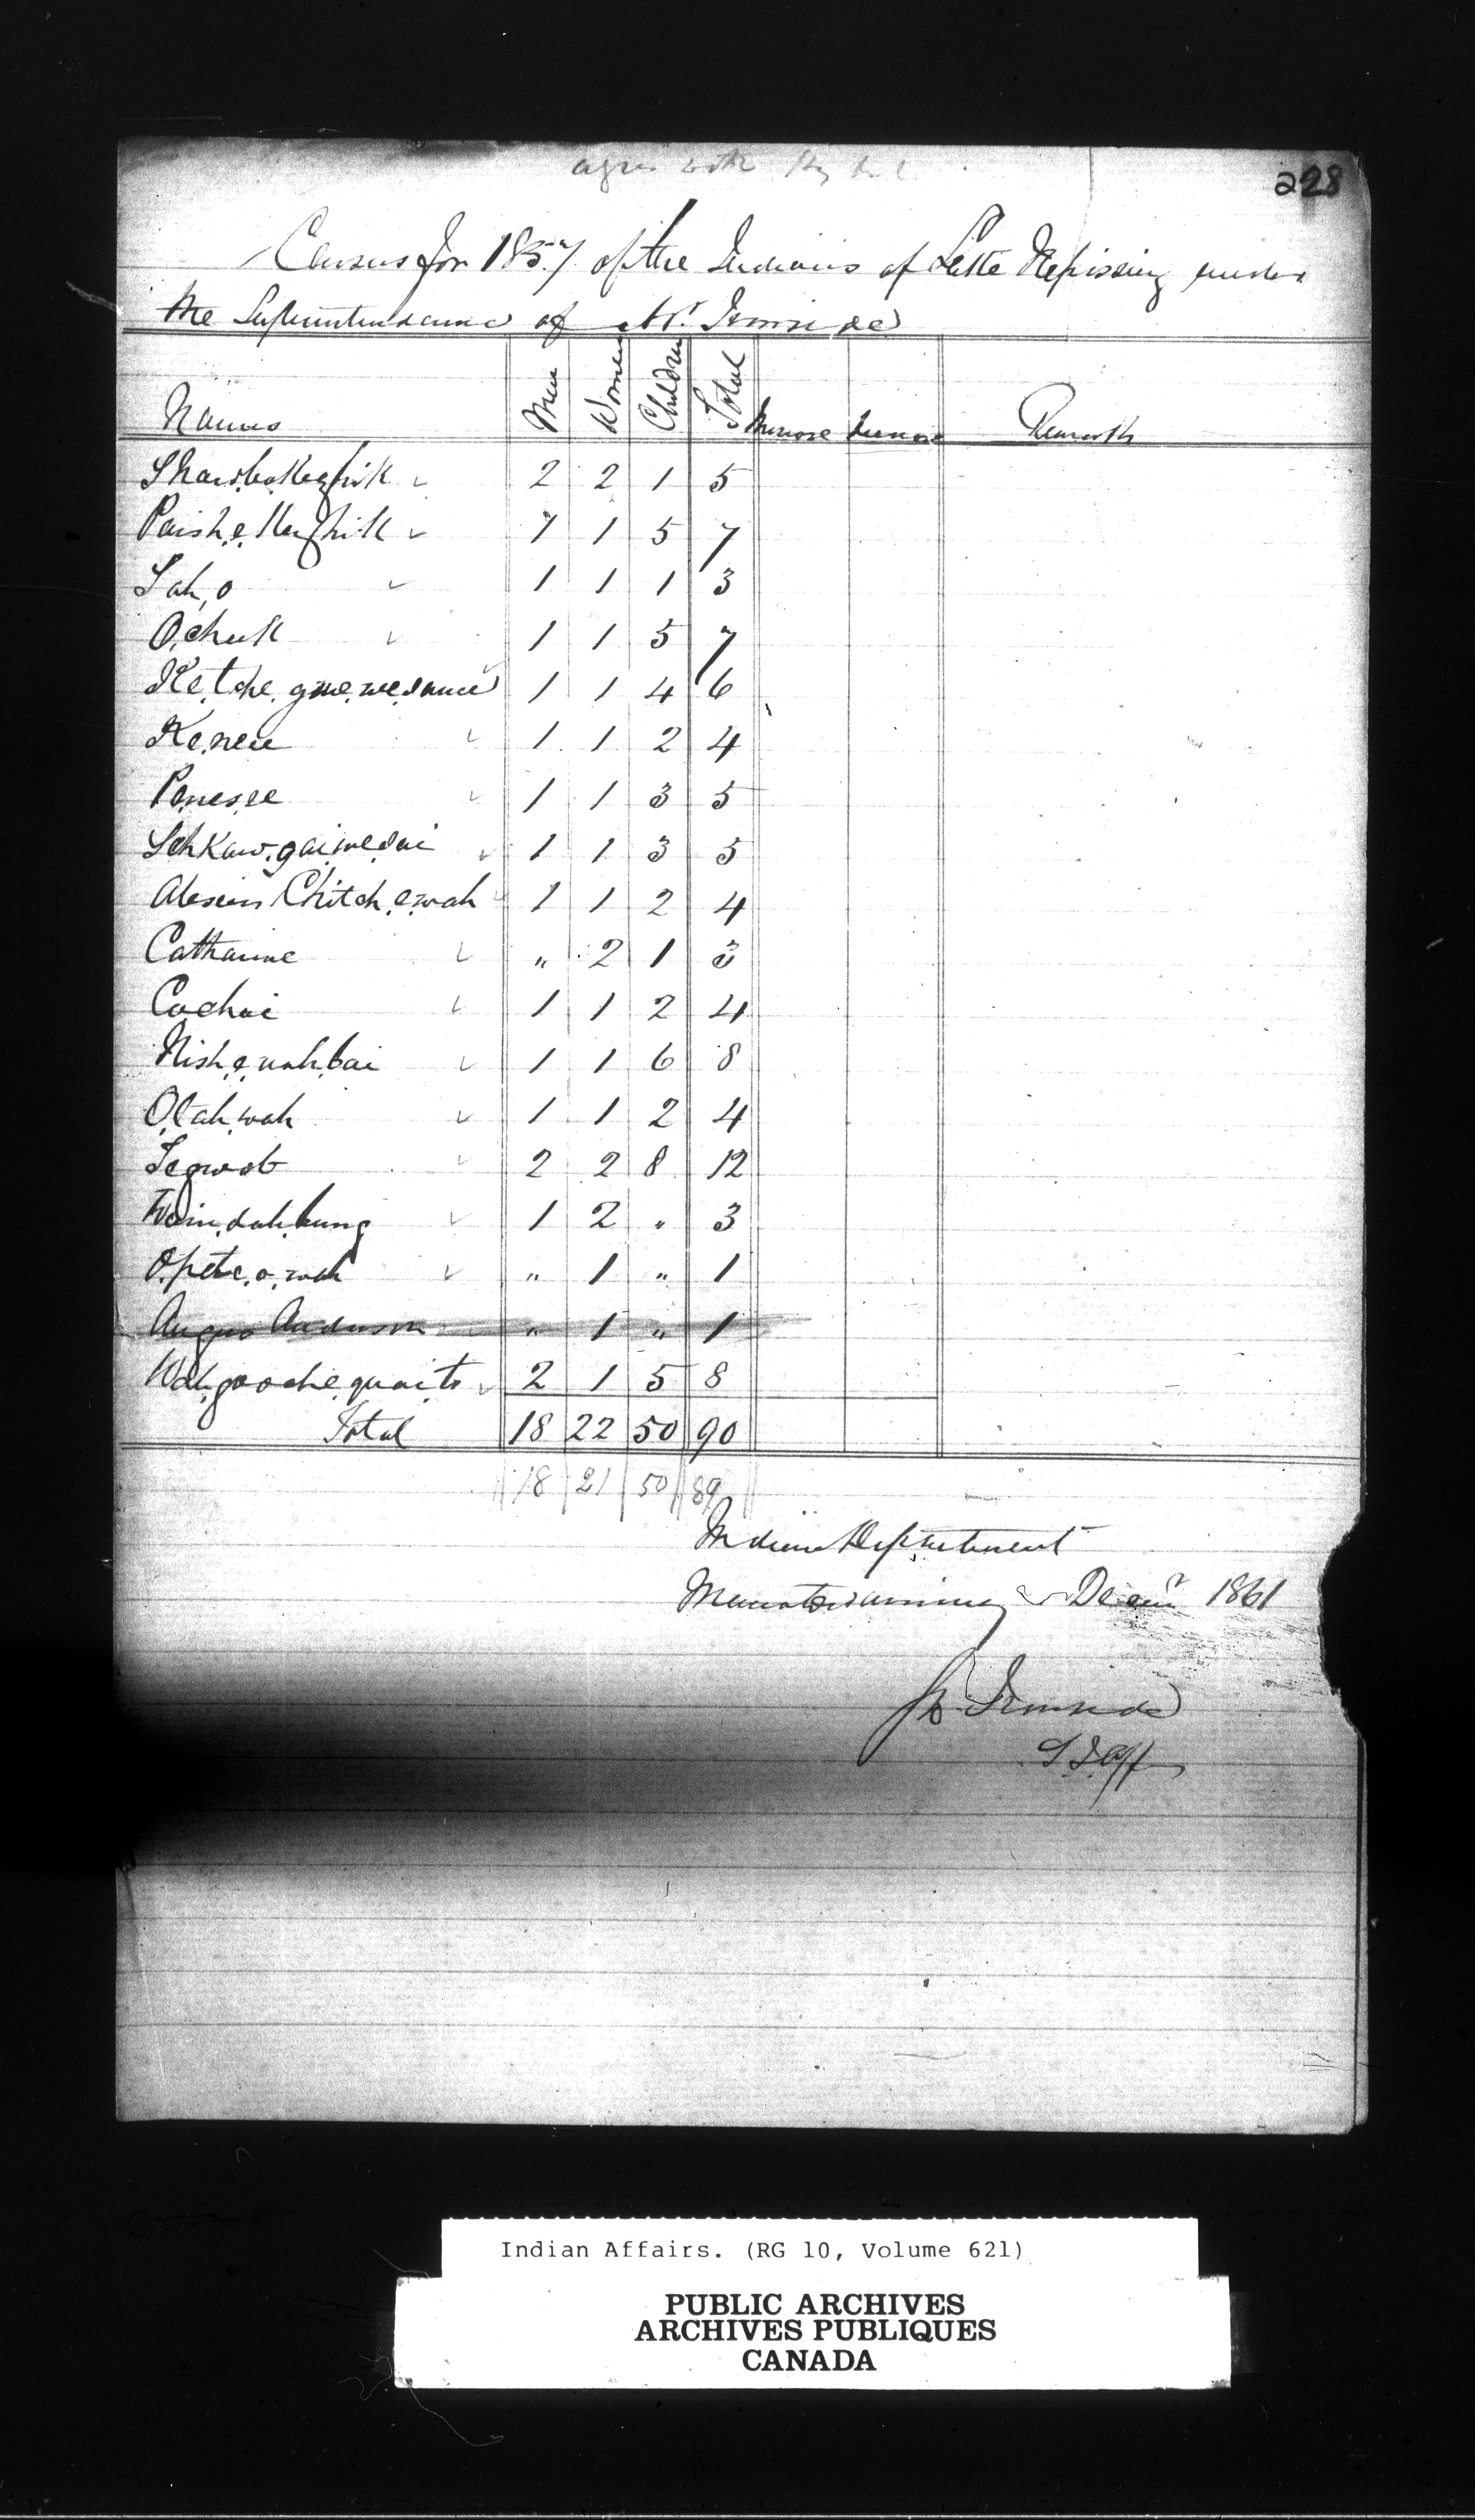 agrees with
228
Census for 1857 of the Indians of Lake Nepissing under
the Superintendance of Mr. Ironside
Names Men Women Children Total Increase Decrease Remarks
Shawbokeghik 2 2 1 5
Paish.e.keghik 1 1 5 7
Sah,o 1 1 1 3
O,chuk 1 1 5 7
Ke,tche,gwe,we,sance 1 1 4 6
Ke,neu 1 1 2 4
Penes,se 1 1 3 5
Sahkaw.gai,we,sai 1 1 3 5
Alexis Chitch,e,wah 1 1 2 4
Catharine " 2 1 3
Cochai 1 1 2 4
Nish,e,nah,bai 1 1 6 8
O,tah,wah 1 1 2 4
Segwob 2 2 8 12
Wain,dah,bung 1 2 " 3
O,pete,o,wah " 1 " 1
Angus Anderson " 1 " 1
Wah,goo,che,quaits 2 1 5 8
Total 18 22 50 90
18 21 50 89
Indian Department
Manitowaning Decemr 1861
G Ironside
S I Aff
Indian Affairs. (RG 10, Volume 621)
PUBLIC ARCHIVES
ARCHIVES PUBLIQUES
CANADA